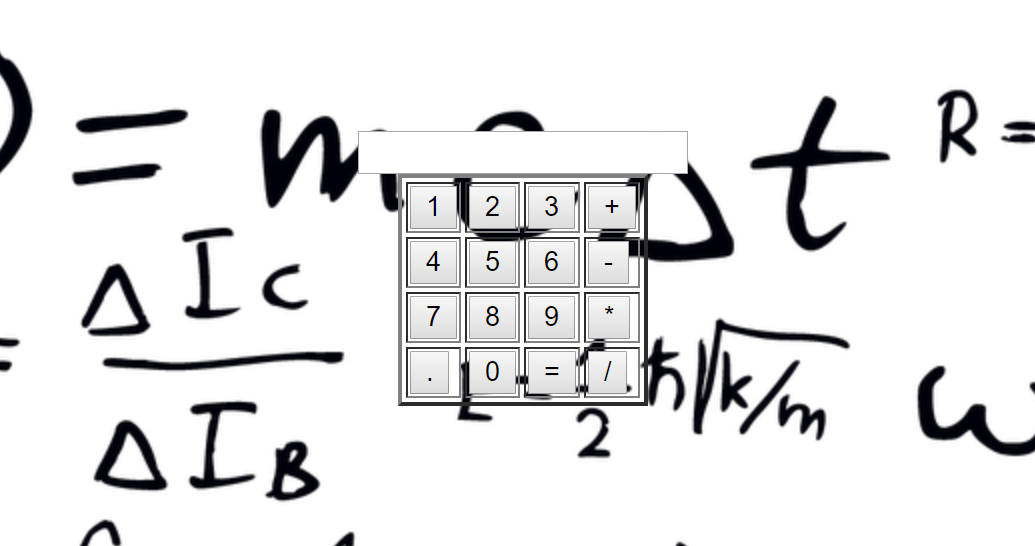 = m Δt R =
ΔIc
ΔIB
1 2 3 +
4 5 6 -
7 8 9 *
. 0 = /
2
ħ√k/m
ω